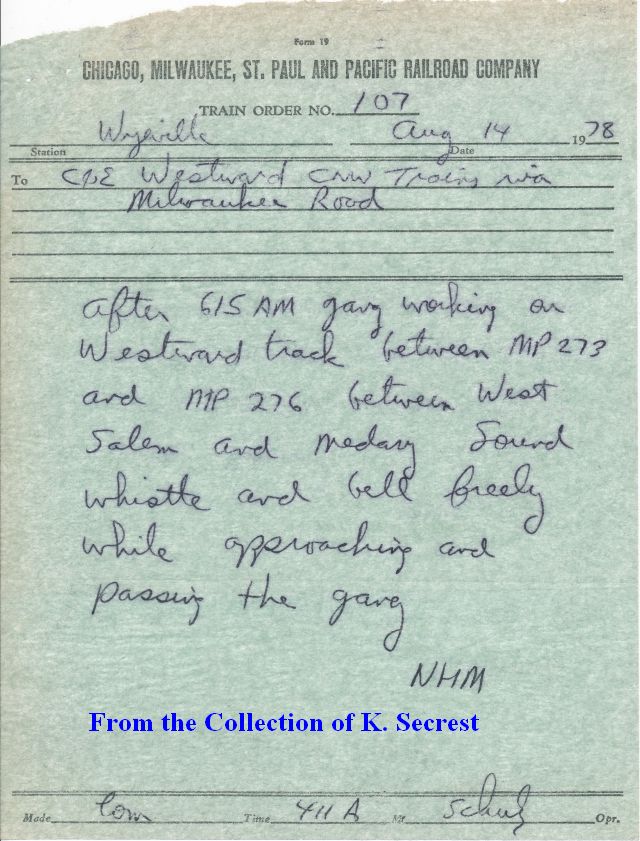 Form 19
CHICAGO, MILWAUKEE, ST. PAUL AND PACIFIC RAILROAD COMPANY
TRAIN ORDER NO. 107
Wyeville Aug 14 1978
Station Date
To C&E Westward CNW Trains via
Milwaukee Road
After 615 AM gang working on
Westward track between MP 273
and MP 276 between West
Salem and Medary Sound
whistle and bell freely
while approaching and
passing the gang
NHM
From the Collection of K. Secrest
Made Com Time 411 A M Schulz Opr.